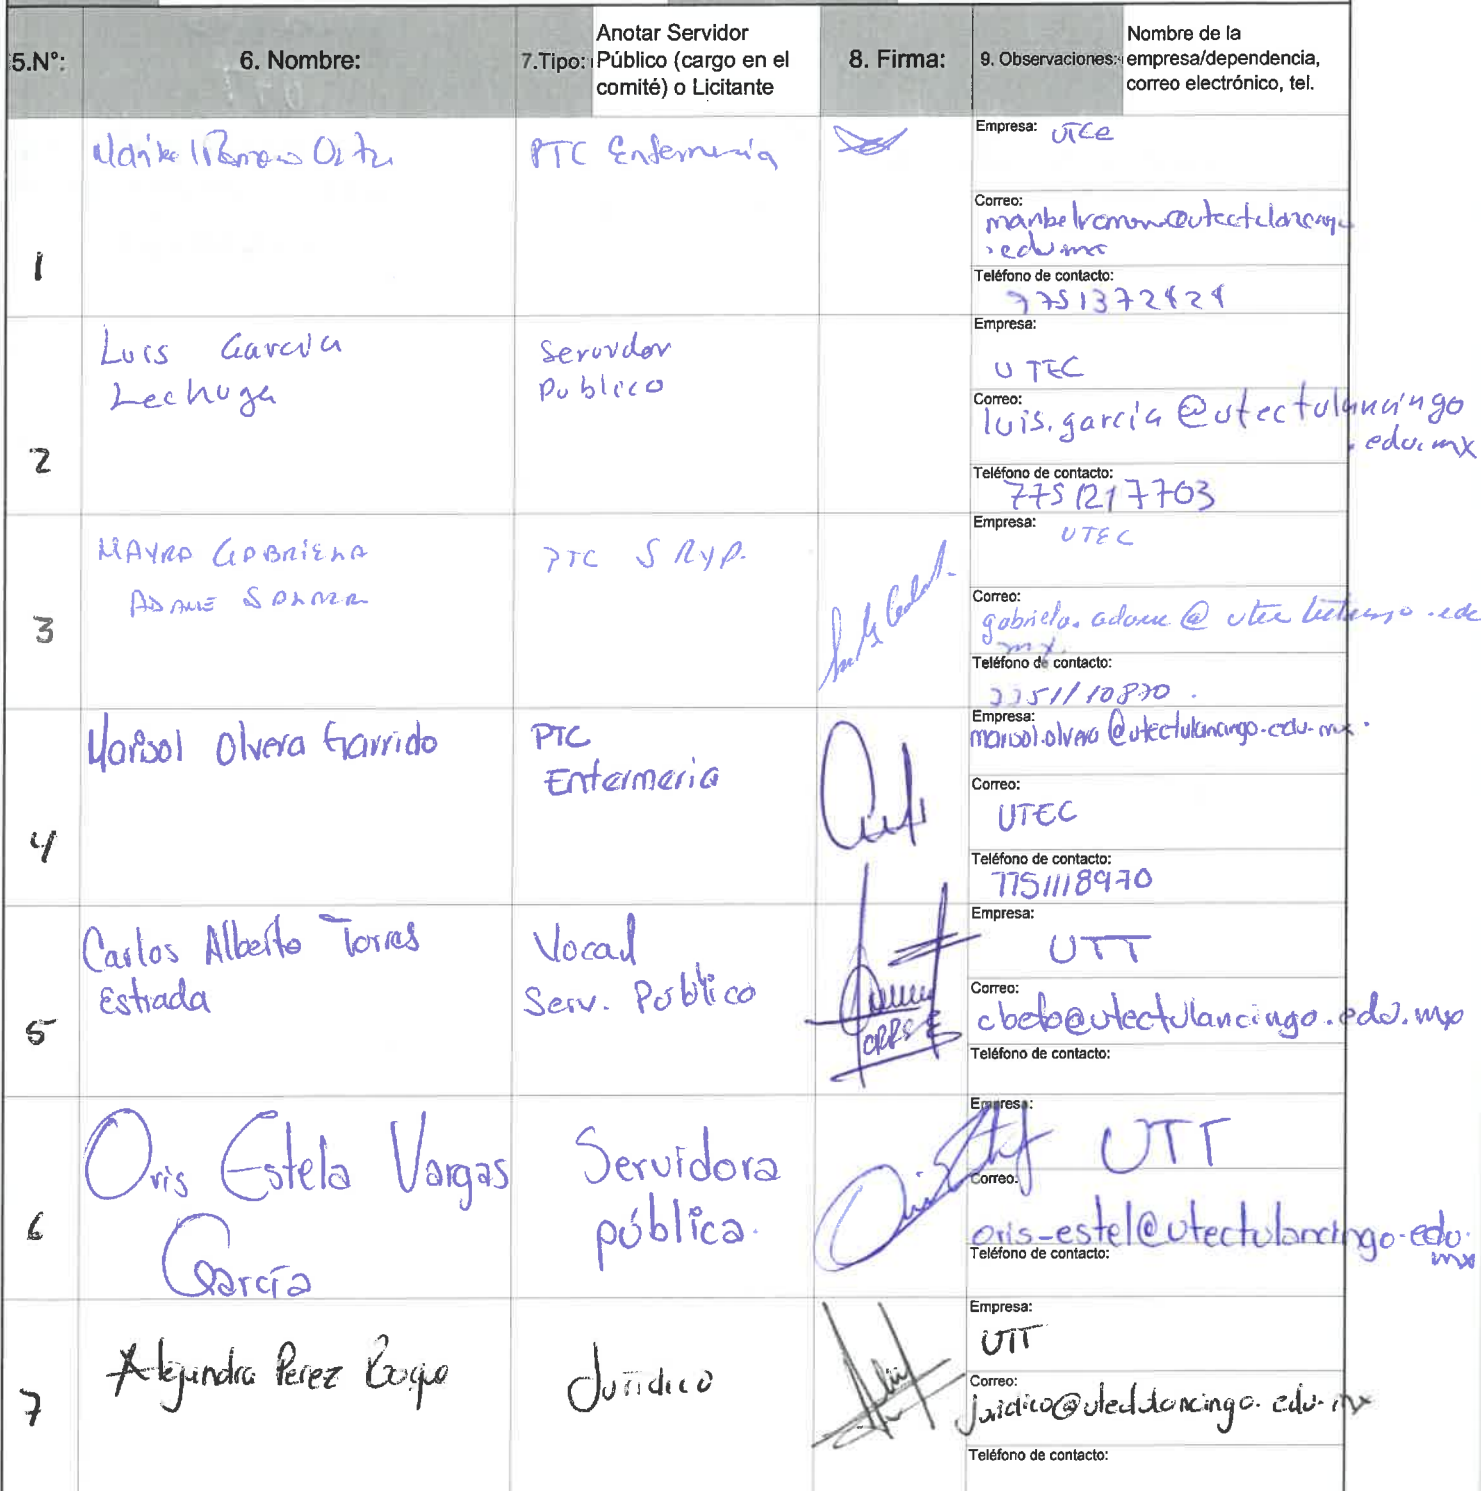 5.N°:
6. Nombre:
7.Tipo:
Anotar Servidor
Público (cargo en el
comité) o Licitante
8. Firma:
9. Observaciones:
Nombre de la
empresa/dependencia,
correo electrónico, tel.
1
PTC Enfermeria
Empresa: UTCe
Correo:
.edu.mx
Teléfono de contacto:
2
Luis Garcia
Lechuga
Servidor
Publico
Empresa:
UTEC
Correo:
luis.garcia@utectulancingo
.edu.mx
Teléfono de contacto:
7751217703
3
MAYRA GABRIELA
ADAME
PTC S RyP.
Empresa: UTEC
Correo:
mx.
Teléfono de contacto:
4
Marisol Olvera Garrido
PTC
Enfermeria
Empresa:
marisol.olvera@utectulancingo.edu.mx.
Correo:
UTEC
Teléfono de contacto:
7751118970
5
Carlos Alberto Torres
Estrada
Vocal
Serv. Público
Empresa:
UTT
Correo:
cbeto@utectulancingo.edu.mx
Teléfono de contacto:
6
Oris Estela Vargas
García
Servidora
pública.
Empresa:
UTT
Correo:
oris-estel@utectulancingo.edu.
mx
Teléfono de contacto:
7
Alejandra Perez
Jurídico
Empresa:
UTT
Correo:
juridico@utectulancingo.edu.mx
Teléfono de contacto: